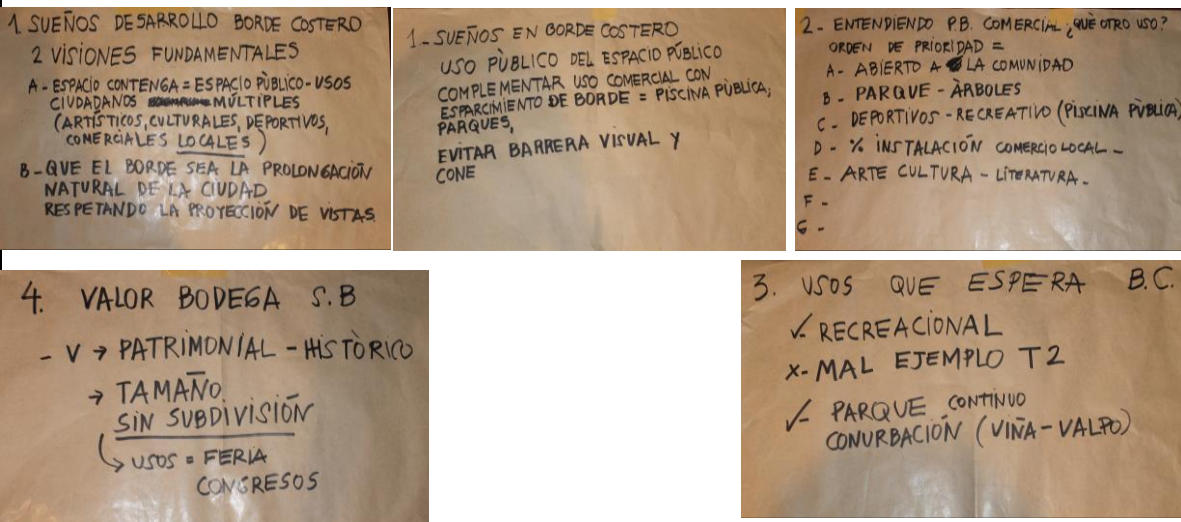 1. SUEÑOS DESARROLLO BORDE COSTERO
2 VISIONES FUNDAMENTALES
A - ESPACIO CONTENGA = ESPACIO PÙBLICO - USOS
CIUDADANOS MÚLTIPLES
(ARTÍSTICOS, CULTURALES, DEPORTIVOS,
COMERCIALES LOCALES)
B - QUE EL BORDE SEA LA PROLONGACIÓN
NATURAL DE LA CIUDAD
RESPETANDO LA PROYECCIÓN DE VISTAS.
1 - SUEÑOS EN BORDE COSTERO
USO PÙBLICO DEL ESPACIO PÚBLICO
COMPLEMENTAR USO COMERCIAL CON
ESPARCIMIENTO DE BORDE = PISCINA PÙBLICA,
PARQUES,
EVITAR BARRERA VISUAL Y
CONE
2 - ENTENDIENDO P.B. COMERCIAL ¿QUÈ OTRO USO?
ORDEN DE PRIORIDAD =
A - ABIERTO A LA COMUNIDAD
B - PARQUE - ÀRBOLES
C - DEPORTIVOS - RECREATIVO (PISCINA PÙBLICA)
D - % INSTALACIÓN COMERCIO LOCAL -
E - ARTE CULTURA - LITERATURA -
F -
G -
4. VALOR BODEGA S.B
- V → PATRIMONIAL - HISTÒRICO
→ TAMAÑO
SIN SUBDIVISIÓN
↳ USOS = FERIA
CONGRESOS
3. USOS QUE ESPERA B.C.
✓- RECREACIONAL
X- MAL EJEMPLO T2
✓- PARQUE CONTINUO
CONURBACIÓN (VIÑA - VALPO)